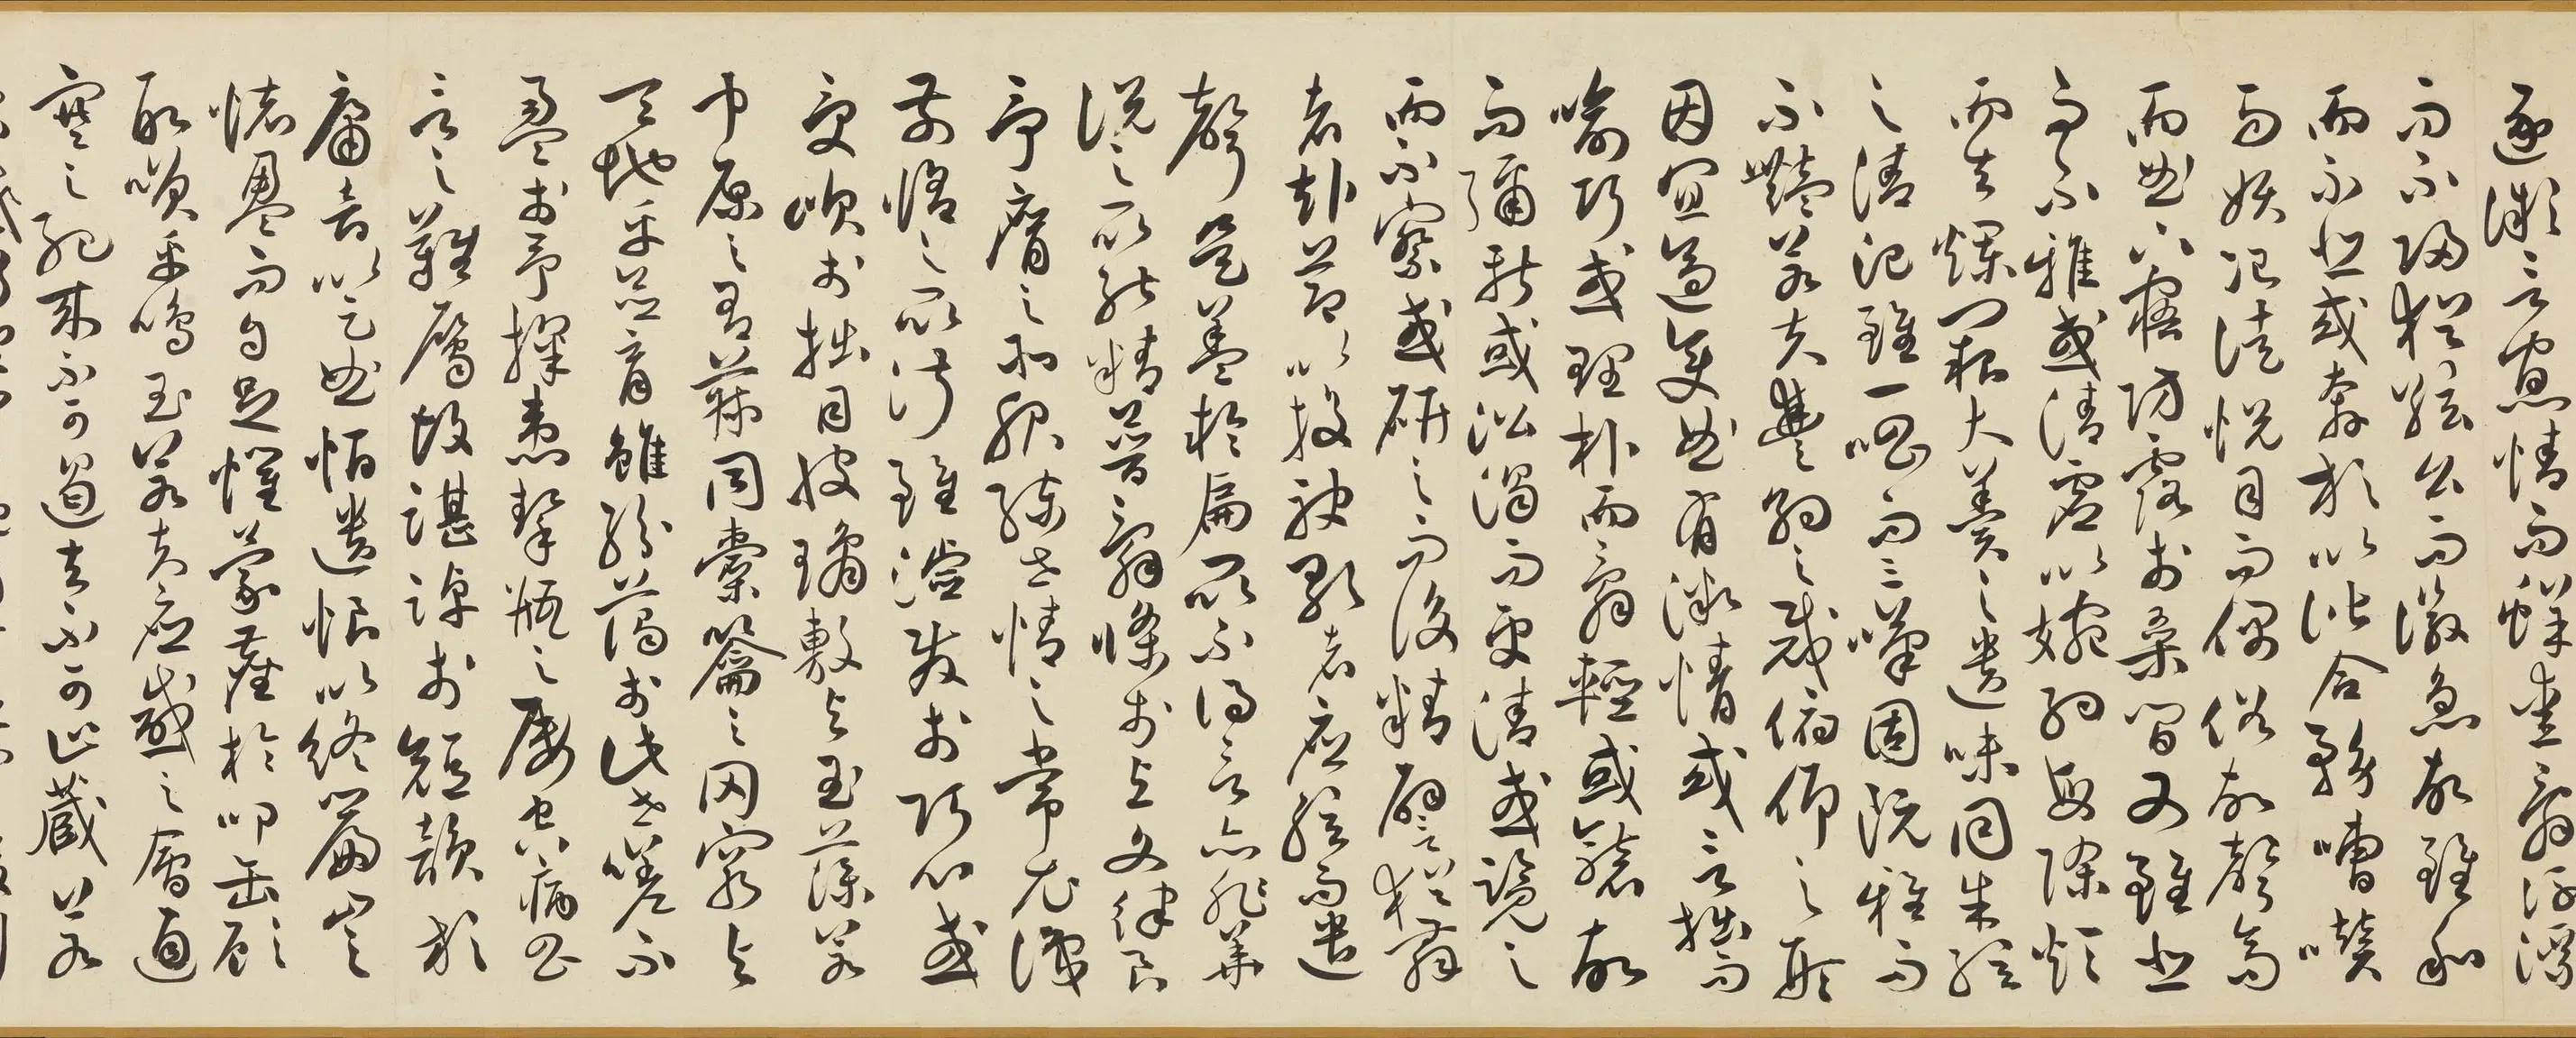 逐微言寡情而鮮愛辭浮漂
而不歸猶絃么而徽急故雖和
而不悲或奔放以諧合務嘈囋
而妖冶徒悅目而偶俗故聲高
而曲下寤防露於桑間又雖悲
而不雅或清虛以婉約每除煩
而去爛闕大羹之遺味同朱絃
之清氾雖一唱而三嘆固既雅而
不豔若夫豐約之裁俯仰之形
因宜適變曲有微情或言拙而
喻巧或理朴而辭輕或襲故
而彌新或沿濁而更清或覽之
而不察或研之而後精譬猶舞
者赴節以投袂歌者應絃而遣
聲是蓋於扁所不得言亦非華
說之所能精普辭條於與文律良
予膺之所服練世情之常尤識
前脩之所淑雖濬發於巧心或
受嗤於拙目彼瓊敷與玉藻若
中原之有菽同橐籥之罔窮與
天地乎並育雖紛藹於此世嗟不
盈於予掬患挈瓶之屢空病昌
言之難屬故踸踔於短韻放
庸音以足曲恒遺恨以終篇豈
懷盈而自足懼蒙塵於叩缶顧
取笑乎鳴玉若夫應感之會通
塞之紀來不可遏去不可止藏若